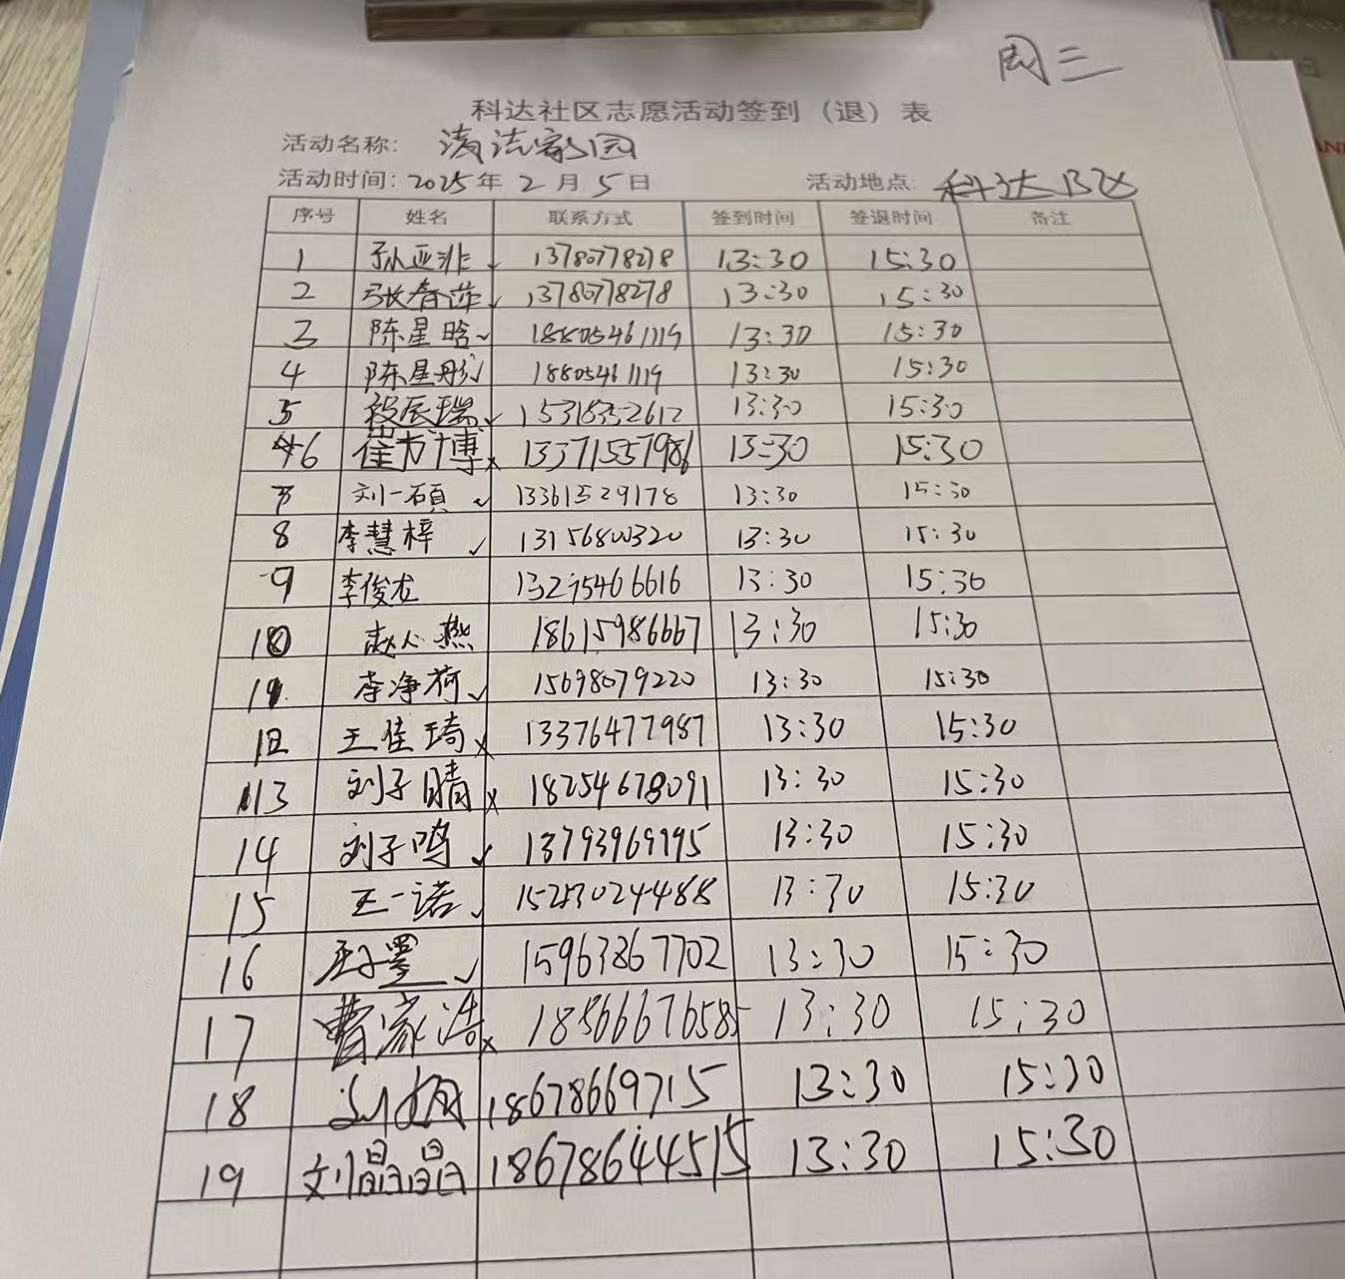 周三
科达社区志愿活动签到（退）表
活动名称：清洁家园
活动时间：2025年2月5日 活动地点：科达B区
序号 姓名 联系方式 签到时间 签退时间 备注
1 孙亚非 13780778278 13:30 15:30
2 张春萍 13780778278 13:30 15:30
3 陈星晗 18805461119 13:30 15:30
4 陈星彤 18805461119 13:30 15:30
5 段辰瑞 15318352612 13:30 15:30
6 崔方博 13371557986 13:30 15:30
7 刘一硕 13361529178 13:30 15:30
8 李慧梓 13156800320 13:30 15:30
9 李俊龙 13295466616 13:30 15:30
10 赵心燕 18615986667 13:30 15:30
11 李净荷 15698079220 13:30 15:30
12 王佳琦 13376477987 13:30 15:30
13 刘子晴 18254678091 13:30 15:30
14 刘子鸣 13793969795 13:30 15:30
15 王一诺 13:30 15:30
16 15963867702 13:30 15:30
17 曹家浩 18566676585 13:30 15:30
18 刘 18678669715 13:30 15:30
19 刘晶晶 18678644515 13:30 15:30